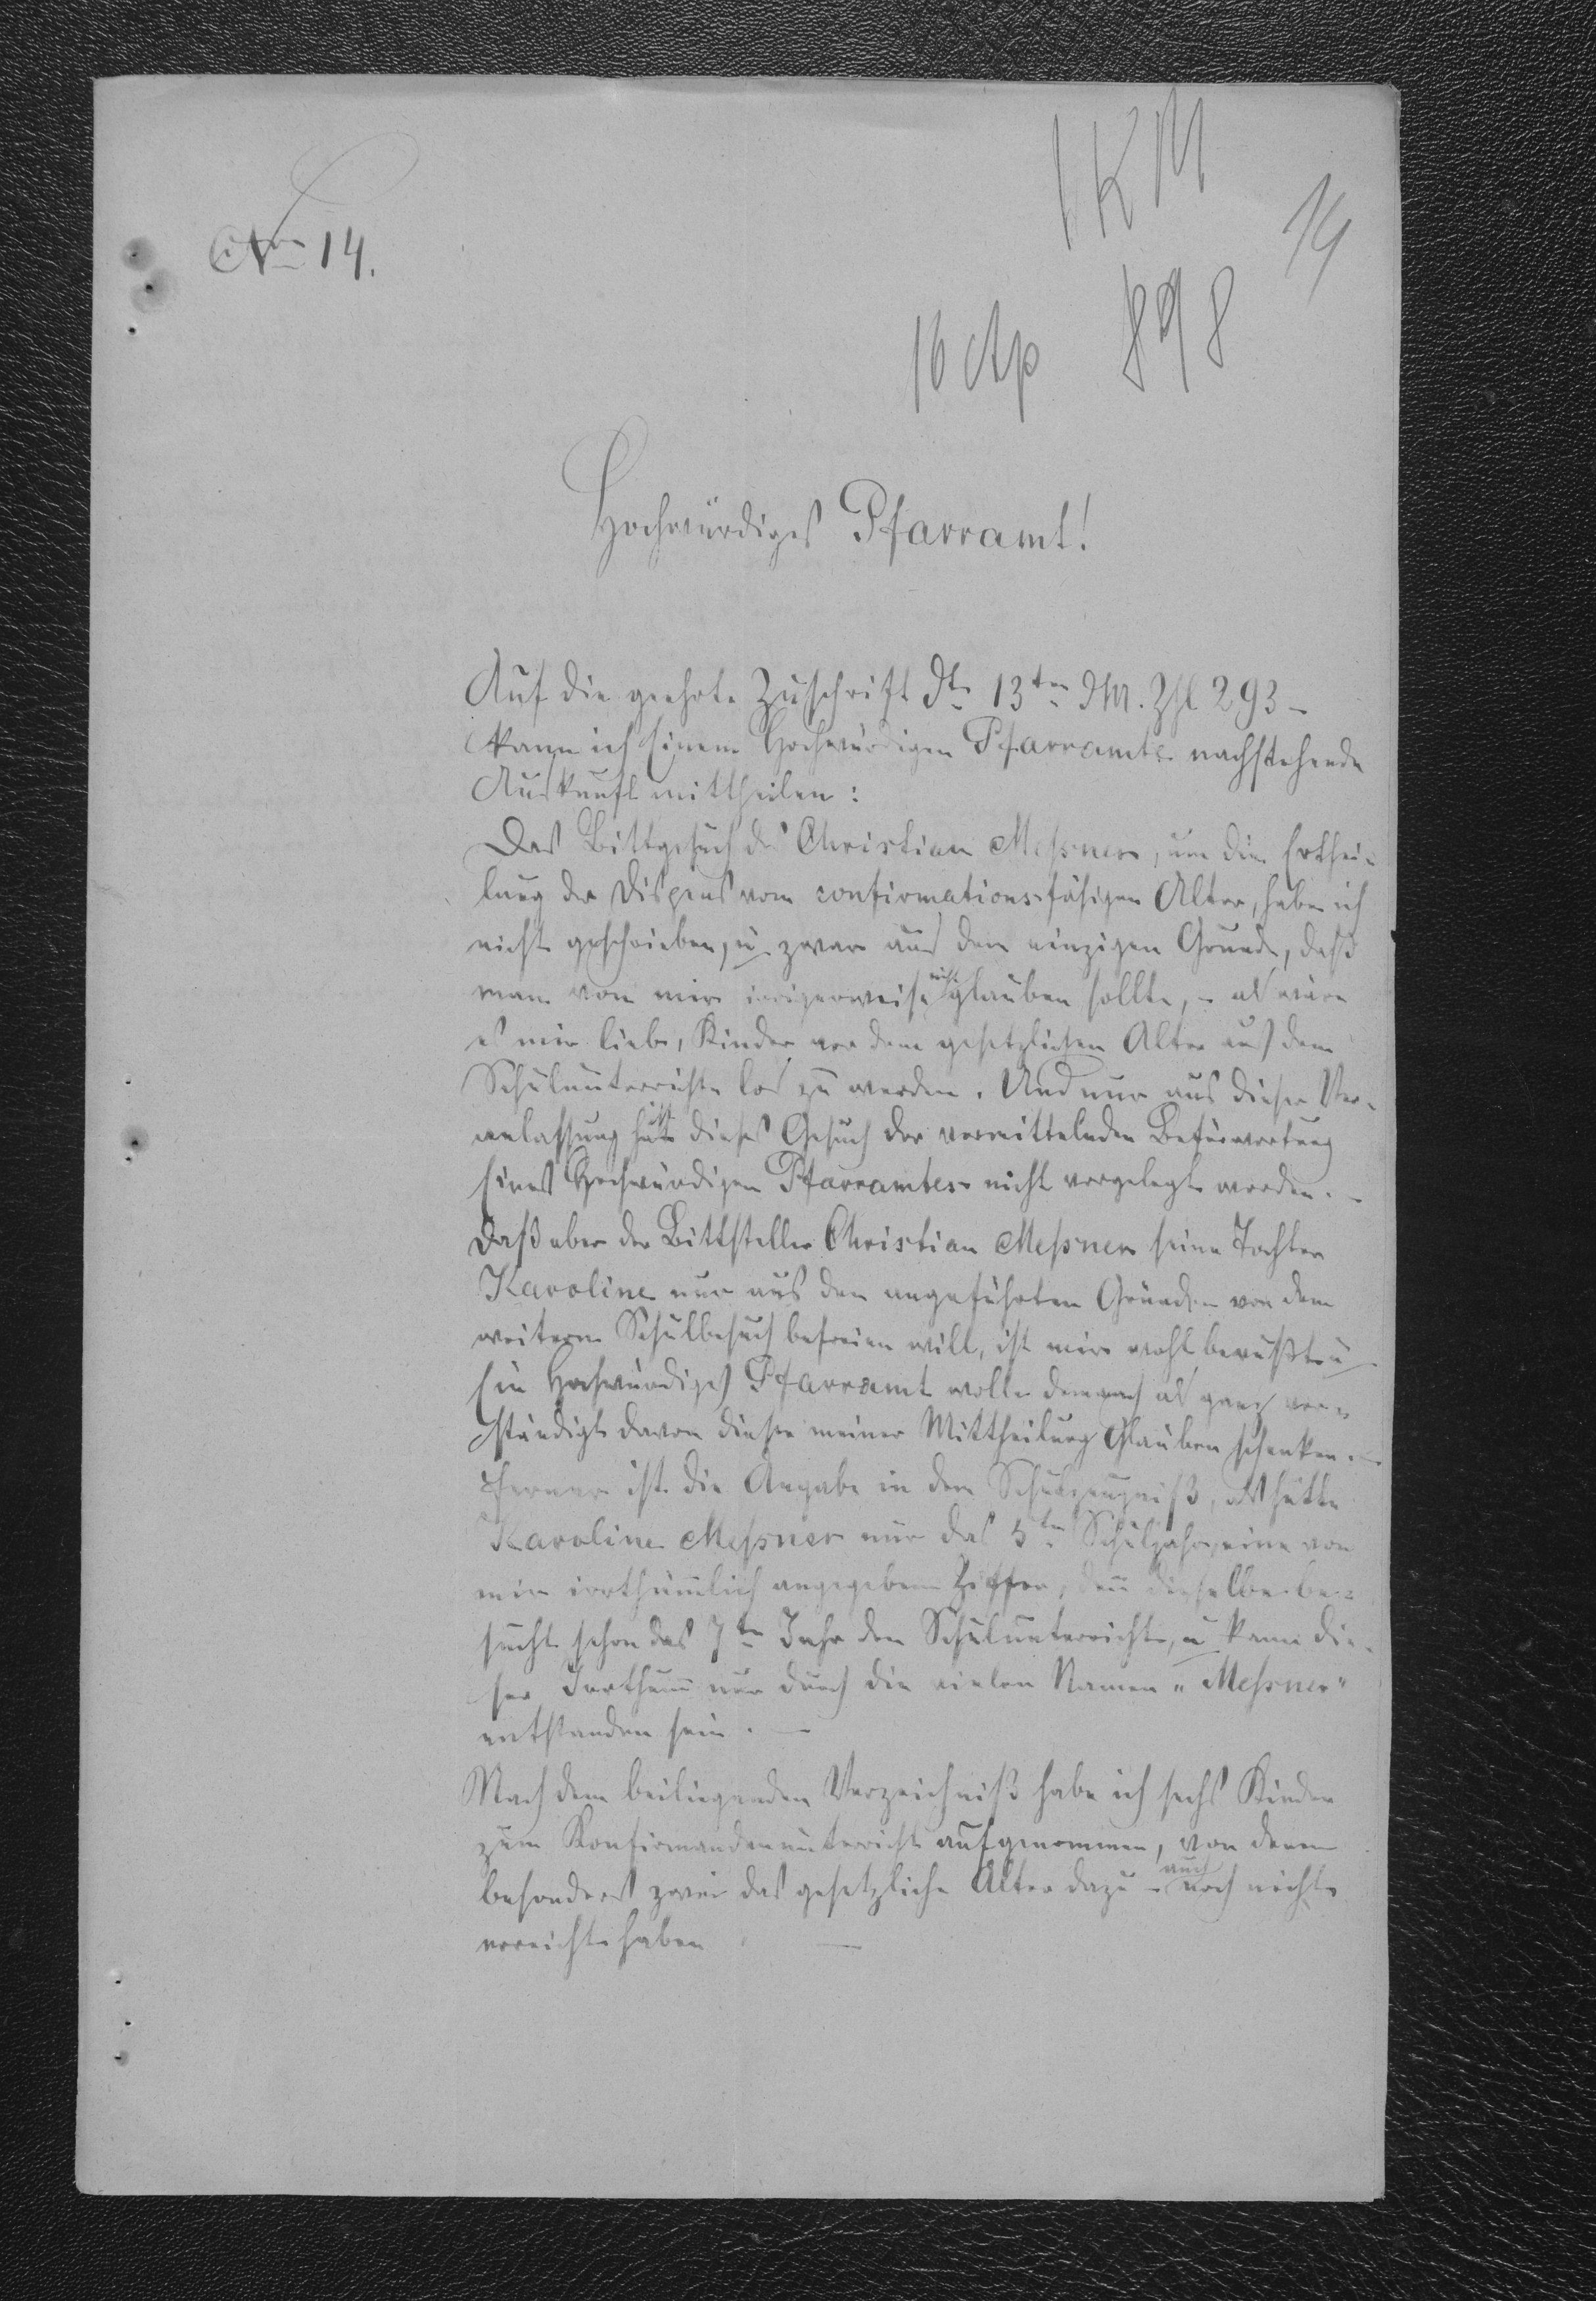 IKM
14
No 14.
16 Ap 898
Hochwürdiges Pfarramt!
Auf die geehrte Zuschrift dto 13ten dM. Zhl 293 -
kann ich Einem Hochwürdigen Pfarramte nachstehende
Auskunft mittheilen:
Das Bittgesuch des Christian Messner, um die Erthei-
lung der Dispens vom confirmationsfähigen Alter, habe ich
nicht geschrieben, u. zwar aus dem einzigen Grunde, daß
man von mir irrigerweise nicht glauben sollte, - als wäre
es mir lieb, Kinder vor dem gesetzlichen Alter aus dem
Schulunterrichte los zu werden. Und nur aus dieser Ver-
anlassung ist dieses Gesuch der vermittelnden Befürwortung
Eines Hochwürdigen Pfarramtes nicht vorgelegt worden. -
Daß aber der Bittsteller Christian Messner seine Tochter
Karoline nur aus den angeführten Gründen von dem
weitern Schulbesuch befreien will, ist mir wohl bewußt u
Ein Hochwürdiges Pfarramt wolle demnach als ganz ver-
ständigt davon dieser meiner Mittheilung Glauben schenken. -
Ferner ist die Angabe in dem Schulzeugniß, als hätte
Karoline Messner nur das 5te Schuljahr, eine von
mir irrthümlich angegebene Ziffer, denn dieselbe be-
sucht schon das 7te Jahr den Schulunterricht, u kann die-
ser Irrthum nur durch die vielen Namen "Messner"
entstanden sein. -
Nach dem beiliegenden Verzeichniß habe ich sechs Kinder
zum Konfirmandenunterricht aufgenommen, von denen
besonders zwei das gesetzliche Alter dazu - auch noch nicht
erreicht haben. -